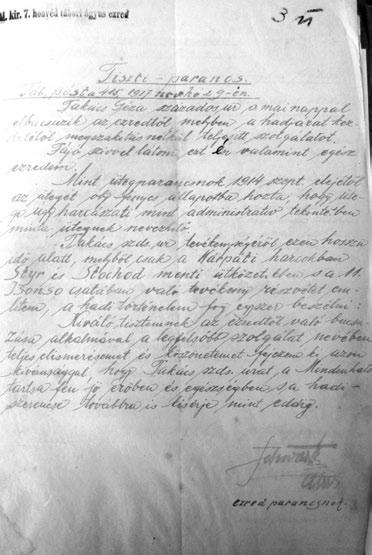 M. kir. 7. honvéd tábori ágyus ezred
3 VI
Tiszti - parancs.
Táb. posta 415, 1917 hó 29-én.
Takács Géza százados ur a mai nappal
elbucsuzik az ezredtől melyben a hadjárat kez-
detétől megszakitás nélkül teljesitt szolgálatot.
Fájó szivvel látom ezt én valamint egész
ezredem.
Mint ütegparancsnok 1914 szept. elejétől
az üteget oly fényes állapotba hozta, hogy üte-
ge ugy harcászati mint administrativ tekintetben
minta ütegnek nevezhető.
Takács szds. ur tevékenységéről ezen hosszu
idő alatt, melyből csak a Kárpáti harcokban
Styr és Stochod menti ütközetekben s a 11.
Isonzo csatában való tevékeny részvétel em-
litem, a hadi történelem fog egyszer beszélni:
Kiváló tisztemnek az ezredtől való bucsu-
zása alkalmával a legfelsőbb szolgálat nevében
teljes elismerésemet és köszönetemet fejezem ki azon
kivánsággal, hogy Takács szds. urat a Mindenható
tartsa fen jó erőben és egészségben s a hadi-
szerencse továbbra is kisérje mint eddig.
ezred parancsnok.